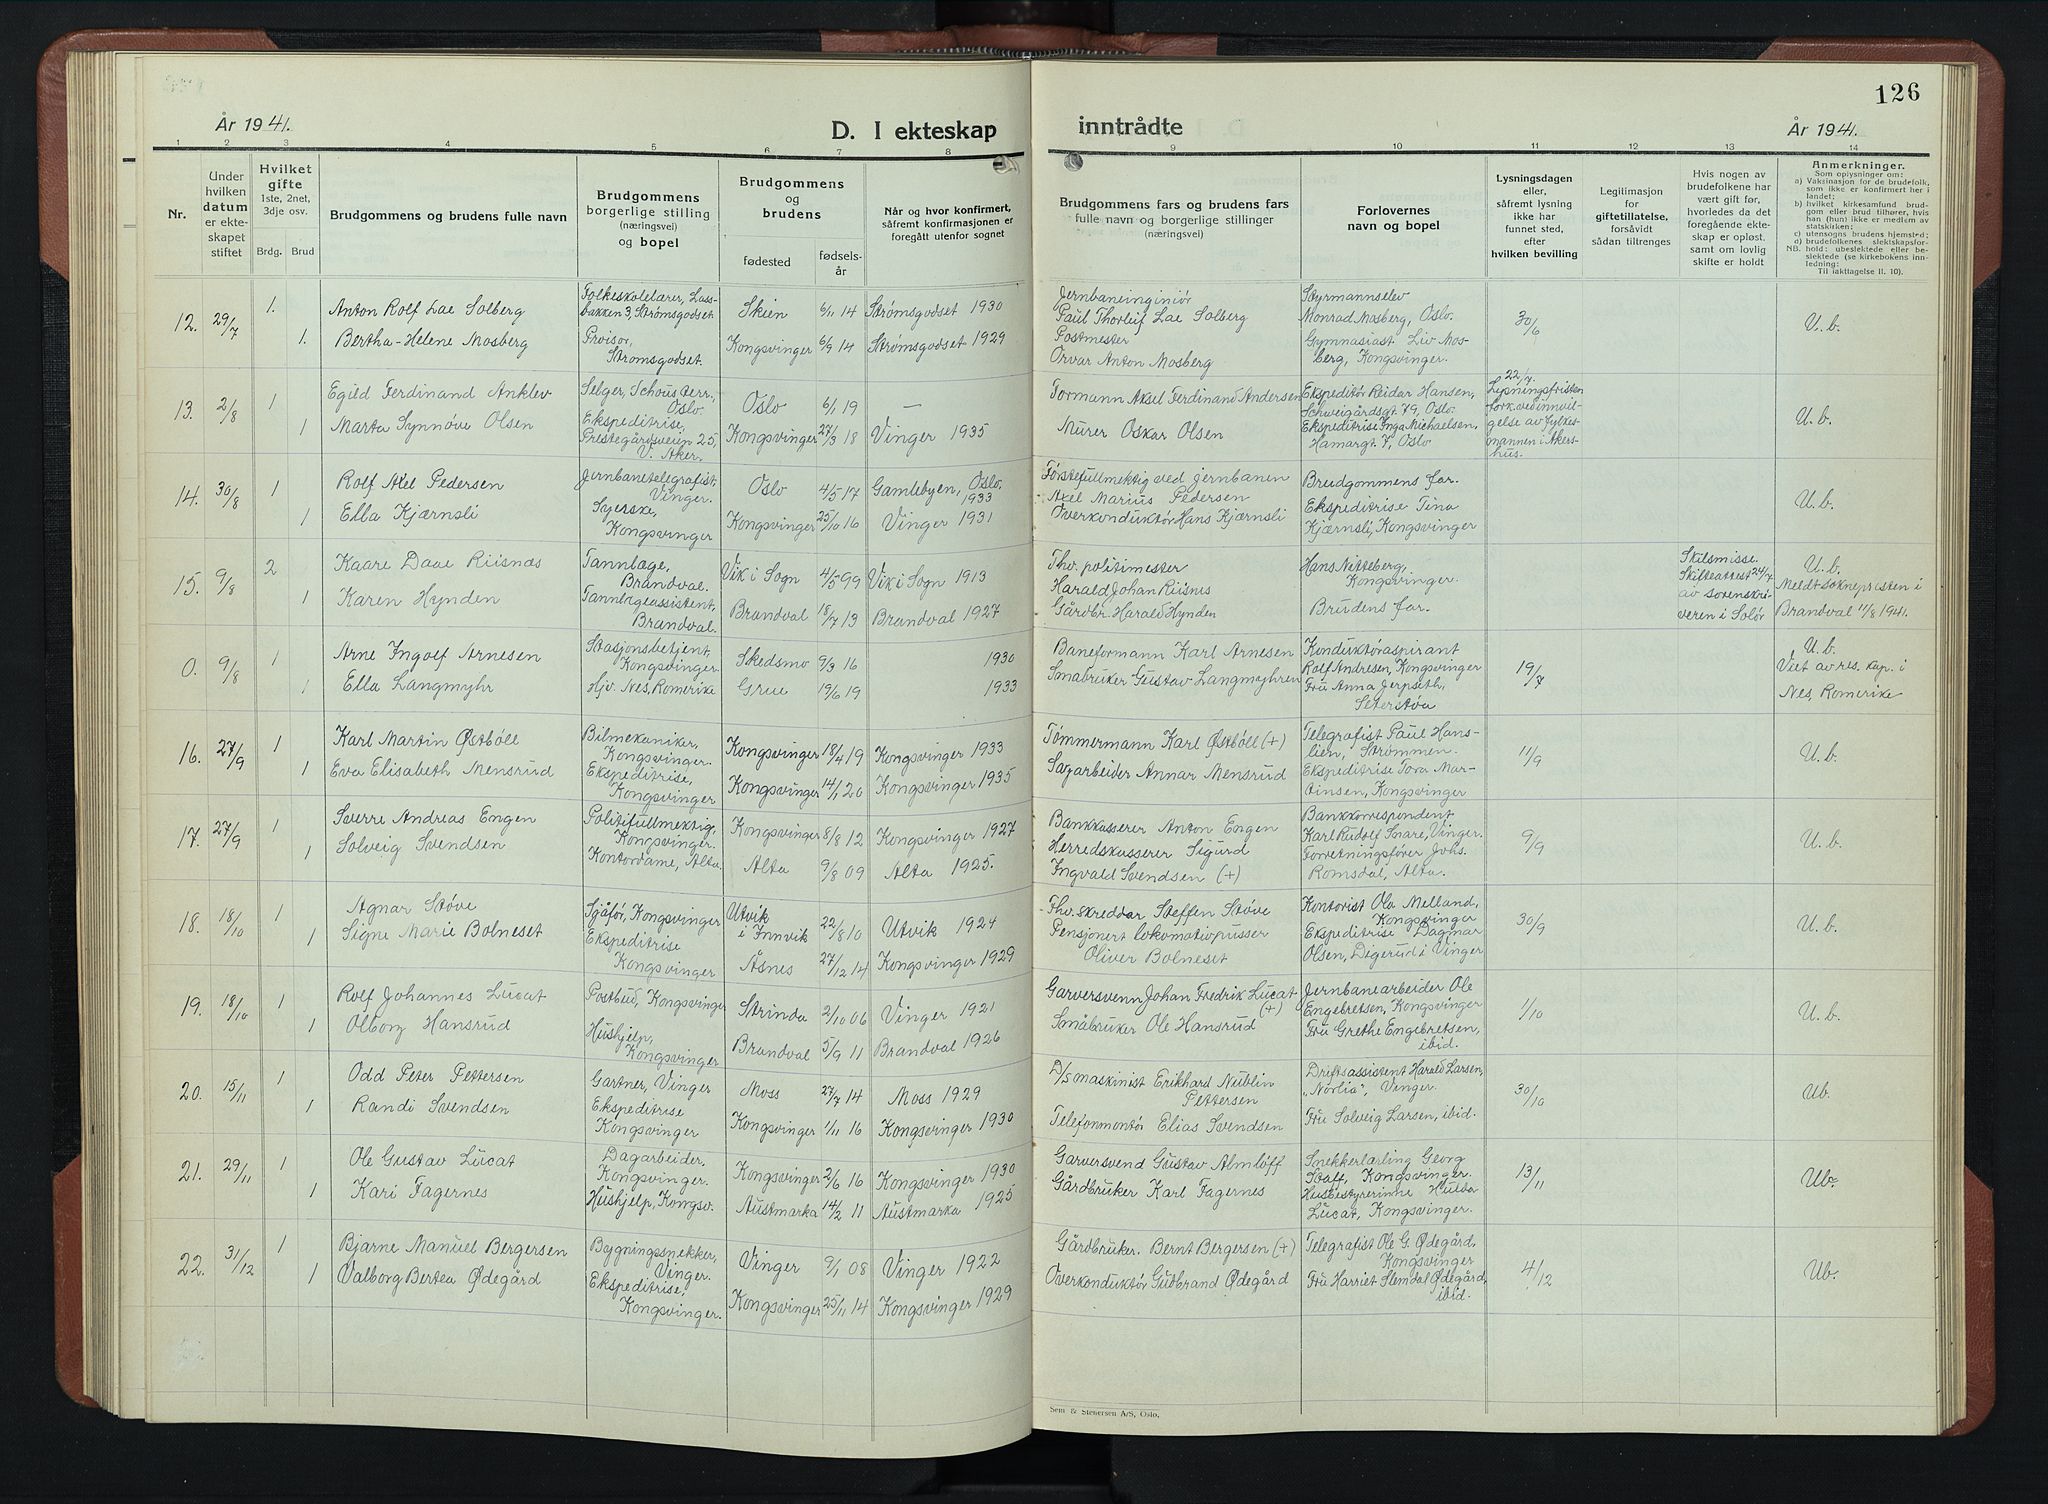 126
År 1941.
D. I ekteskap inntrådte
År 1941.
1 2 3 4 5 6 7 8 9 10 11 12 13 14
Nr.
Under
hvilken
datum
er ekte-
skapet
stiftet
Hvilket
gifte
1ste, 2net,
3dje osv.
Brdg. Brud
Brudgommens og brudens fulle navn
Brudgommens
borgerlige stilling
(næringsvei)
og bopel
Brudgommens
og
brudens
fødested
fødsels-
år
Når og hvor konfirmert,
såfremt konfirmasjonen er
foregått utenfor sognet
Brudgommens fars og brudens fars
fulle navn og borgerlige stillinger
(næringsvei)
Forlovernes
navn og bopel
Lysningsdagen
eller,
såfremt lysning
ikke har
funnet sted,
efter
hvilken bevilling
Legitimasjon
for
giftetillatelse,
forsåvidt
sådan tiltrenges
Hvis nogen av
brudefolkene har
vært gift før,
hvorledes da det
foregående ekte-
skap er opløst,
samt om lovlig
skifte er holdt
Anmerkninger.
Som oplysninger om:
a) Vaksinasjon for de brudefolk,
som ikke er konfirmert her i
landet;
b) hvilket kirkesamfund brud-
gom eller brud tilhører, hvis
han (hun) ikke er medlem av
statskirken;
c) utensogns brudens hjemsted;
d) brudefolkenes slektskapsfor-
NB. hold: ubeslektede eller be-
slektede (se kirkebokens inn-
ledning:
Til iakttagelse II. 10).
12. 29/7 1. Anton Rolf Lae Solberg
Folkeskolelærer, Lass-
bakken 3, Strømsgodset
Skien 6/11 14 Strømsgodset 1930
1. Bertha-Helene Mosberg
Provisor,
Strømsgodset.
Kongsvinger 6/9 14 Strømsgodset 1929
Jernbaneinginiør
Paul Thorleif Lae Solberg
Postmester
Orvar Anton Mosberg
Styrmannselev
Monrad Mosberg, Oslo.
Gymnasiast Liv Mos-
berg, Kongsvinger.
30/6
U. b.
13. 2/8 1 Egild Ferdinand Anklev
Selger, Schous terr.,
Oslo.
Oslo 6/1 19 —
1 Marta Synnøve Olsen
Ekspeditrise,
Prestegårdsveien 25
V. Aker.
Kongsvinger 27/3 18 Vinger 1935
Formann Aksel Ferdinand Andersen
Murer Oskar Olsen
Ekspeditør Reidar Hansen,
Schweigårdsgt. 79, Oslo.
Ekspeditrise Inga Michaelsen,
Hamargt. 7, Oslo
22/7.
Lysningsfristen
fork. ved innvil-
gelse av fylkes-
mannen i Akers-
hus.
U. b.
14. 30/8 1 Rolf Axel Pedersen
Jernbanetelegrafist,
Vinger.
Oslo 4/5 17 Gamlebyen, Oslo.
1933
1 Ella Kjærnsli
Syerske,
Kongsvinger
Kongsvinger 25/10 16 Vinger 1931
Førstefullmektig ved jernbanen
Axel Marius Pedersen
Overkonduktør Hans Kjærnsli
Brudgommens far.
Ekspeditrise Tina
Kjærnsli, Kongsvinger
U. b.
15. 9/8 2 Kaare Daae Riisnæs
Tannlæge,
Brandval.
Vik i Sogn 4/5 99 Vik i Sogn 1913
1 Karen Hynden
Tannlegeassistent,
Brandval.
Brandval 18/7 13 Brandval 1927
Fhv. politimester
Harald Johan Riisnes
Gårdbr. Harald Hynden
Hans Nitteberg,
Kongsvinger.
Brudens far.
Skilsmisse.
Skifteattest 24/7
av sorenskri-
veren i Solør
U. b.
Meldt soknepresten i
Brandval 11/8 1941.
0. 9/8 1 Arne Ingolf Arnesen
Stasjonsbetjent,
Kongsvinger.
Skedsmo 9/3 16 1930
1 Ella Langmyhr
Hjv. Nes, Romerike
Grue 19/6 19 1933
Baneformann Karl Arnesen
Småbruker Gustav Langmyhren
Konduktøraspirant
Rolf Andresen, Kongsvinger
Fru Anna Jerpseth,
Seterstøa
19/7
U. b.
Viet av res. kap. i
Nes, Romerike
16. 27/9 1 Karl Martin Østböll
Bilmekaniker,
Kongsvinger.
Kongsvinger 18/4 19 Kongsvinger 1933
1 Eva Elisabeth Mensrud
Ekspeditrise,
Kongsvinger
Kongsvinger 14/1 20 Kongsvinger 1935
Tømmermann Karl Østböll (+)
Sagarbeider Annar Mensrud
Telegrafist Paul Hans-
lien, Strømmen.
Ekspeditrise Tora Mar-
tinsen, Kongsvinger
11/9
U. b.
17. 27/9 1 Sverre Andreas Engen
Politifullmektig,
Kongsvinger.
Kongsvinger 8/8 12 Kongsvinger 1927
1 Solveig Svendsen
Kontordame, Alta.
Alta 9/8 09 Alta 1925.
Bankkasserer Anton Engen
Herredskasserer Sigurd
Ingvald Svendsen (+)
Bankkorrespondent
Karl Rudolf Snare, Vinger.
Forretningsfører Johs.
Romsdal, Alta.
9/9
U. b.
18. 18/10 1 Agnar Støve
Sjåfør, Kongsvinger
Utvik
i Innvik
22/8 10 Utvik 1924
1 Signe Marie Bolneset
Ekspeditrise
Kongsvinger
Åsnes 27/12 14 Kongsvinger 1929
Fhv. skreddar Steffen Støve
Pensjonert lokomotivpusser
Oliver Bolneset
Kontorist Ola Melland,
Kongsvinger
Ekspeditrise Dagmar
Olsen, Digerud i Vinger
30/9
U. b.
19. 18/10 1 Rolf Johannes Lucat
Postbud, Kongsvinger
Strinda 2/10 06 Vinger 1921
1 Olborg Hansrud
Hushjelp,
Kongsvinger
Brandval 5/9 11 Brandval 1926
Garversvenn Johan Fredrik Lucat
(+)
Småbruker Ole Hansrud
Jernbanearbeider Ole
Engebretsen, Kongsvinger
Fru Grethe Engebretsen,
ibid.
1/10
U. b.
20. 15/11 1 Odd Peter Pettersen
Gartner, Vinger
Moss 27/7 14 Moss 1929
1 Randi Svendsen
Ekspeditrise
Kongsvinger
Kongsvinger 1/11 16 Kongsvinger 1930
D/s maskinist Erikhard Nublin
Pettersen
Telefonmontør Elias Svendsen
Driftsassistent Harald Larsen,
„Nørlia", Vinger.
Fru Solveig Larsen, ibid.
30/10
Ub.
21. 29/11 1 Ole Gustav Lucat
Dagarbeider,
Kongsvinger.
Kongsvinger 2/6 16 Kongsvinger 1930
1 Kari Fagernes
Hushjelp, Kongsv.
Austmarka 14/2 11 Austmarka 1925
Garversvend Gustav Almløff
Gårdbruker Karl Fagernes
Snekkerlærling Georg
Staff, Kongsvinger.
Husbestyrerinne Hulda
Lucat, Kongsvinger.
13/11
Ub.
22. 31/12 1 Bjarne Manuel Bergersen
Bygningssnekker,
Vinger.
Vinger 9/1 08 Vinger 1922
1 Valborg Bertea Ødegård
Ekspeditrise,
Kongsvinger.
Kongsvinger 25/11 14 Kongsvinger 1929
Gårdbruker. Bernt Bergersen (+)
Overkonduktør Gudbrand Ødegård
Telegrafist Ole G. Ødegård,
Kongsvinger
Fru Harriet Slemdal Ødegård,
ibid.
4/12
Ub.
Sem & Stenersen A/S, Oslo.